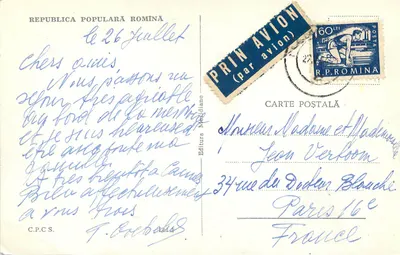 REPUBLICA POPULARĂ ROMÎNĂ
le 26 Juillet
Chers amis
Nous passons un
séjour très agréable
au bord de la mer
et je suis heureuse
d'être avec toute ma
famille
A très bientôt à
Bien affectueusement
à vous trois
C.P.C.S.
Editura Meridiane
PRIN AVION
(par avion)
60 BANI
POSTA
R.P.ROMINA
CARTE POSTALĂ
Monsieur Madame et Mademoiselle
Jean Verloom
34 rue du Docteur Blanche
Paris 16e
France